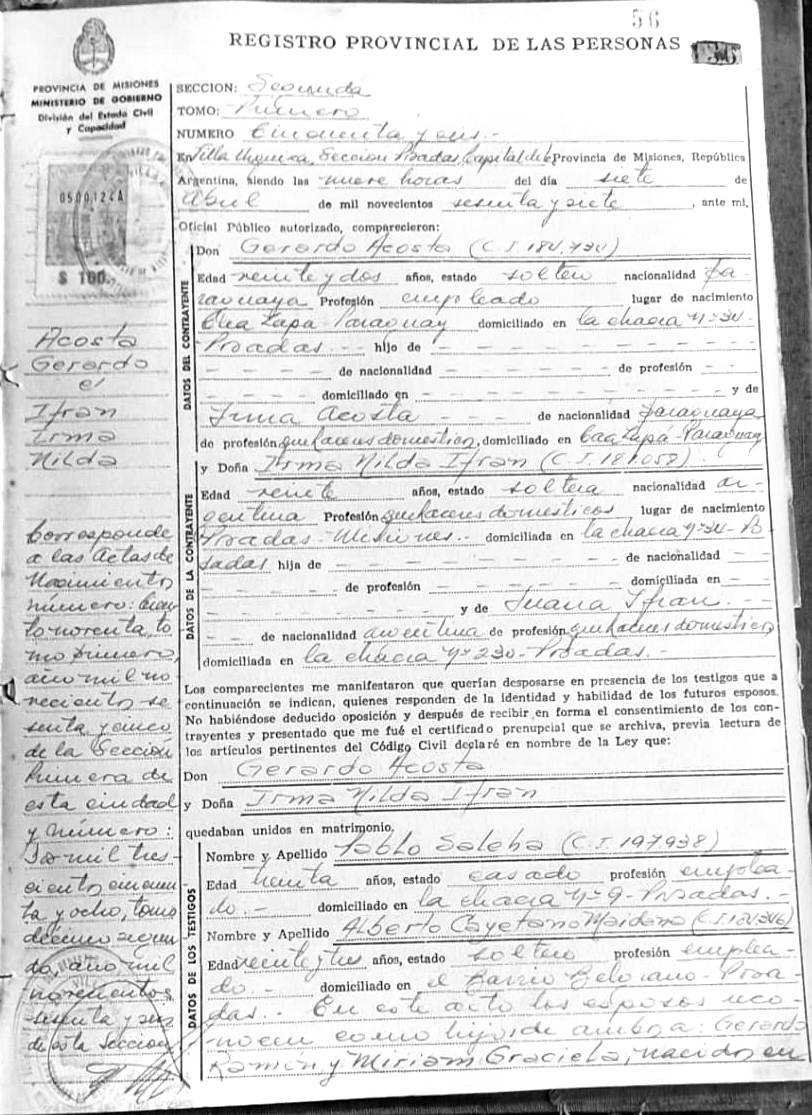 56
REGISTRO PROVINCIAL DE LAS PERSONAS
PROVINCIA DE MISIONES
MINISTERIO DE GOBIERNO
División del Estado Civil
y Capacidad
0500124A
$ 100.
SECCION: Segunda
TOMO: Primero
NUMERO Cincuenta y seis.-
En Villa Urquiza, Seccion Posadas, Capital de la Provincia de Misiones, República
Argentina, siendo las nueve horas del día siete de
Abril de mil novecientos sesenta y siete, ante mi,
Oficial Público autorizado, comparecieron:
DATOS DEL CONTRAYENTE
Don Gerardo Acosta (C.I. 184.734)
Edad veinte y dos años, estado soltero nacionalidad pa-
raguaya Profesión empleado lugar de nacimiento
Paraguay domiciliado en la chacra nº 34-
Posadas.- - hijo de - - - - - - - -
- - - - - de nacionalidad - - - - - - de profesión - -
- - - - - - domiciliado en - - - - - - - - y de
Irma Acosta - - - - - de nacionalidad paraguaya
de profesión quehaceres domesticos, domiciliado en Caazapá-Paraguay
DATOS DE LA CONTRAYENTE
y Doña Irma Nilda Ifran (C.I. 187.058).
Edad veinte años, estado soltera nacionalidad ar-
gentina Profesión quehaceres domesticos lugar de nacimiento
Posadas-Misiones.- domiciliada en la chacra nº 34-Po
sadas hija de - - - - - - - - - de nacionalidad - -
- - - - - - de profesión - - - - - - - domiciliada en - -
- - - - - - - - - y de Juana Ifran.- - -
- - de nacionalidad argentina de profesión quehaceres domesticos
domiciliada en la chacra nº 230-Posadas.-
Los comparecientes me manifestaron que querían desposarse en presencia de los testigos que a
continuación se indican, quienes responden de la identidad y habilidad de los futuros esposos.
No habiéndose deducido oposición y después de recibir en forma el consentimiento de los con-
trayentes y presentado que me fué el certificado prenupcial que se archiva, previa lectura de
los artículos pertinentes del Código Civil declaré en nombre de la Ley que:
Don Gerardo Acosta
y Doña Irma Nilda Ifran
quedaban unidos en matrimonio.
DATOS DE LOS TESTIGOS
Nombre y Apellido Pablo Saleba (C.I. 197.938)
Edad treinta años, estado casado profesión emplea-
do.- domiciliado en la chacra nº 9-Posadas.-
Nombre y Apellido Alberto Cayetano Maidana
Edad veinte y tres años, estado soltero profesión emplea-
do.- domiciliado en el Barrio Belgrano-Posa-
das.- En este acto los esposos reco-
nocen como hijos de ambos: Gerardo
Ramón y Miriam Graciela, nacidos en
Acosta
Gerardo
e/
Ifran
Irma
Nilda
Corresponde
a las Actas de
Nacimiento
número: Cien
to noventa, to
mo primero,
año mil no
vecientos se
senta y cinco
de la Seccion
Primera de
esta ciudad
y número:
Do mil tres-
cientos cincuen
ta y ocho, tomo
décimo segun
do, año mil
novecientos
sesenta y seis
de esta seccion